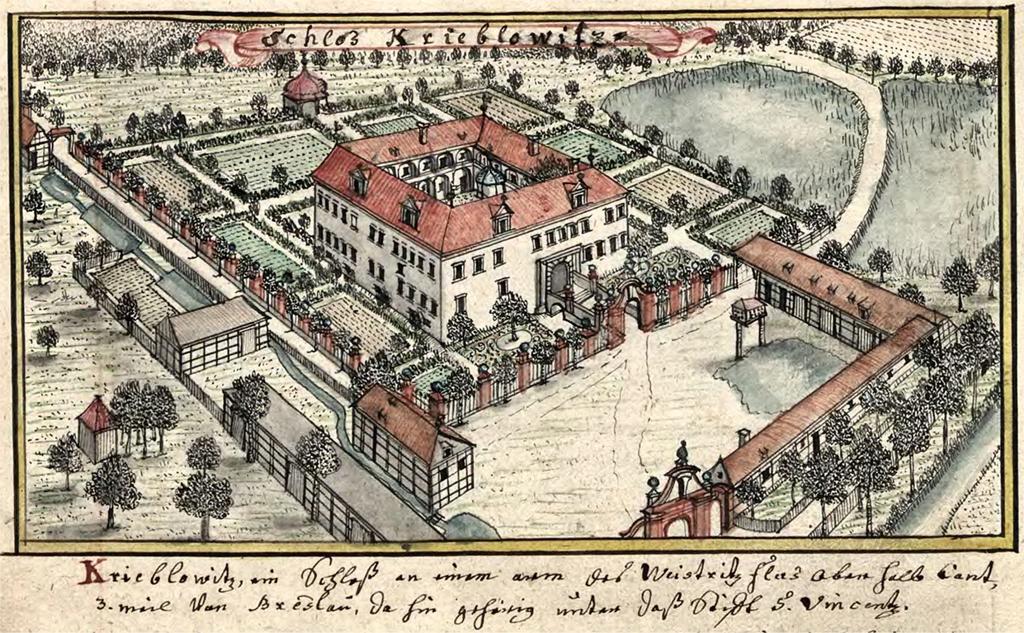 Schloß Krieblowitz
Krieblowitz, ein Schloß an einem arm des Weistritz flus oben halb Cant,
3. meil Von Breslau, da hin gehörig unter daß Stifft S. Vincentz.